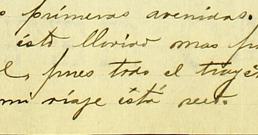 primeras avenidas.
ésto llovido mas
pues todo el
mi viaje está seco.